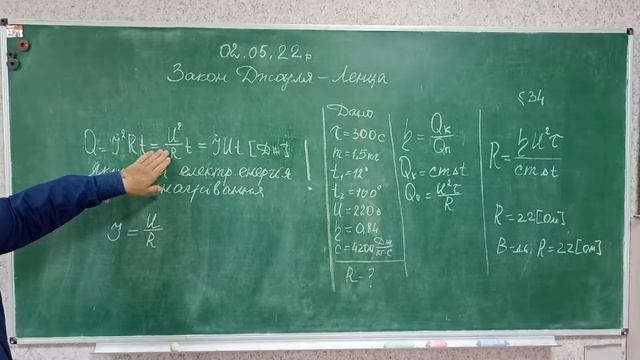 02.05.22р
Закон Джоуля-Ленца
§34
Q = J²Rt = U²/R t = JUt [Дж]
електр. енергія
нагрівання
J = U/R
!
Дано
τ = 300с
m = 1,5кг
t₁ = 12°
t₂ = 100°
U = 220в
η = 0,84
c = 4200 Дж/кг·С
R - ?
η = Qк/Qп
Qк = cmΔt
Qп = U²τ/R
R = ηU²τ/cmΔt
R = 22 [Ом]
В-дь, R = 22 [Ом]